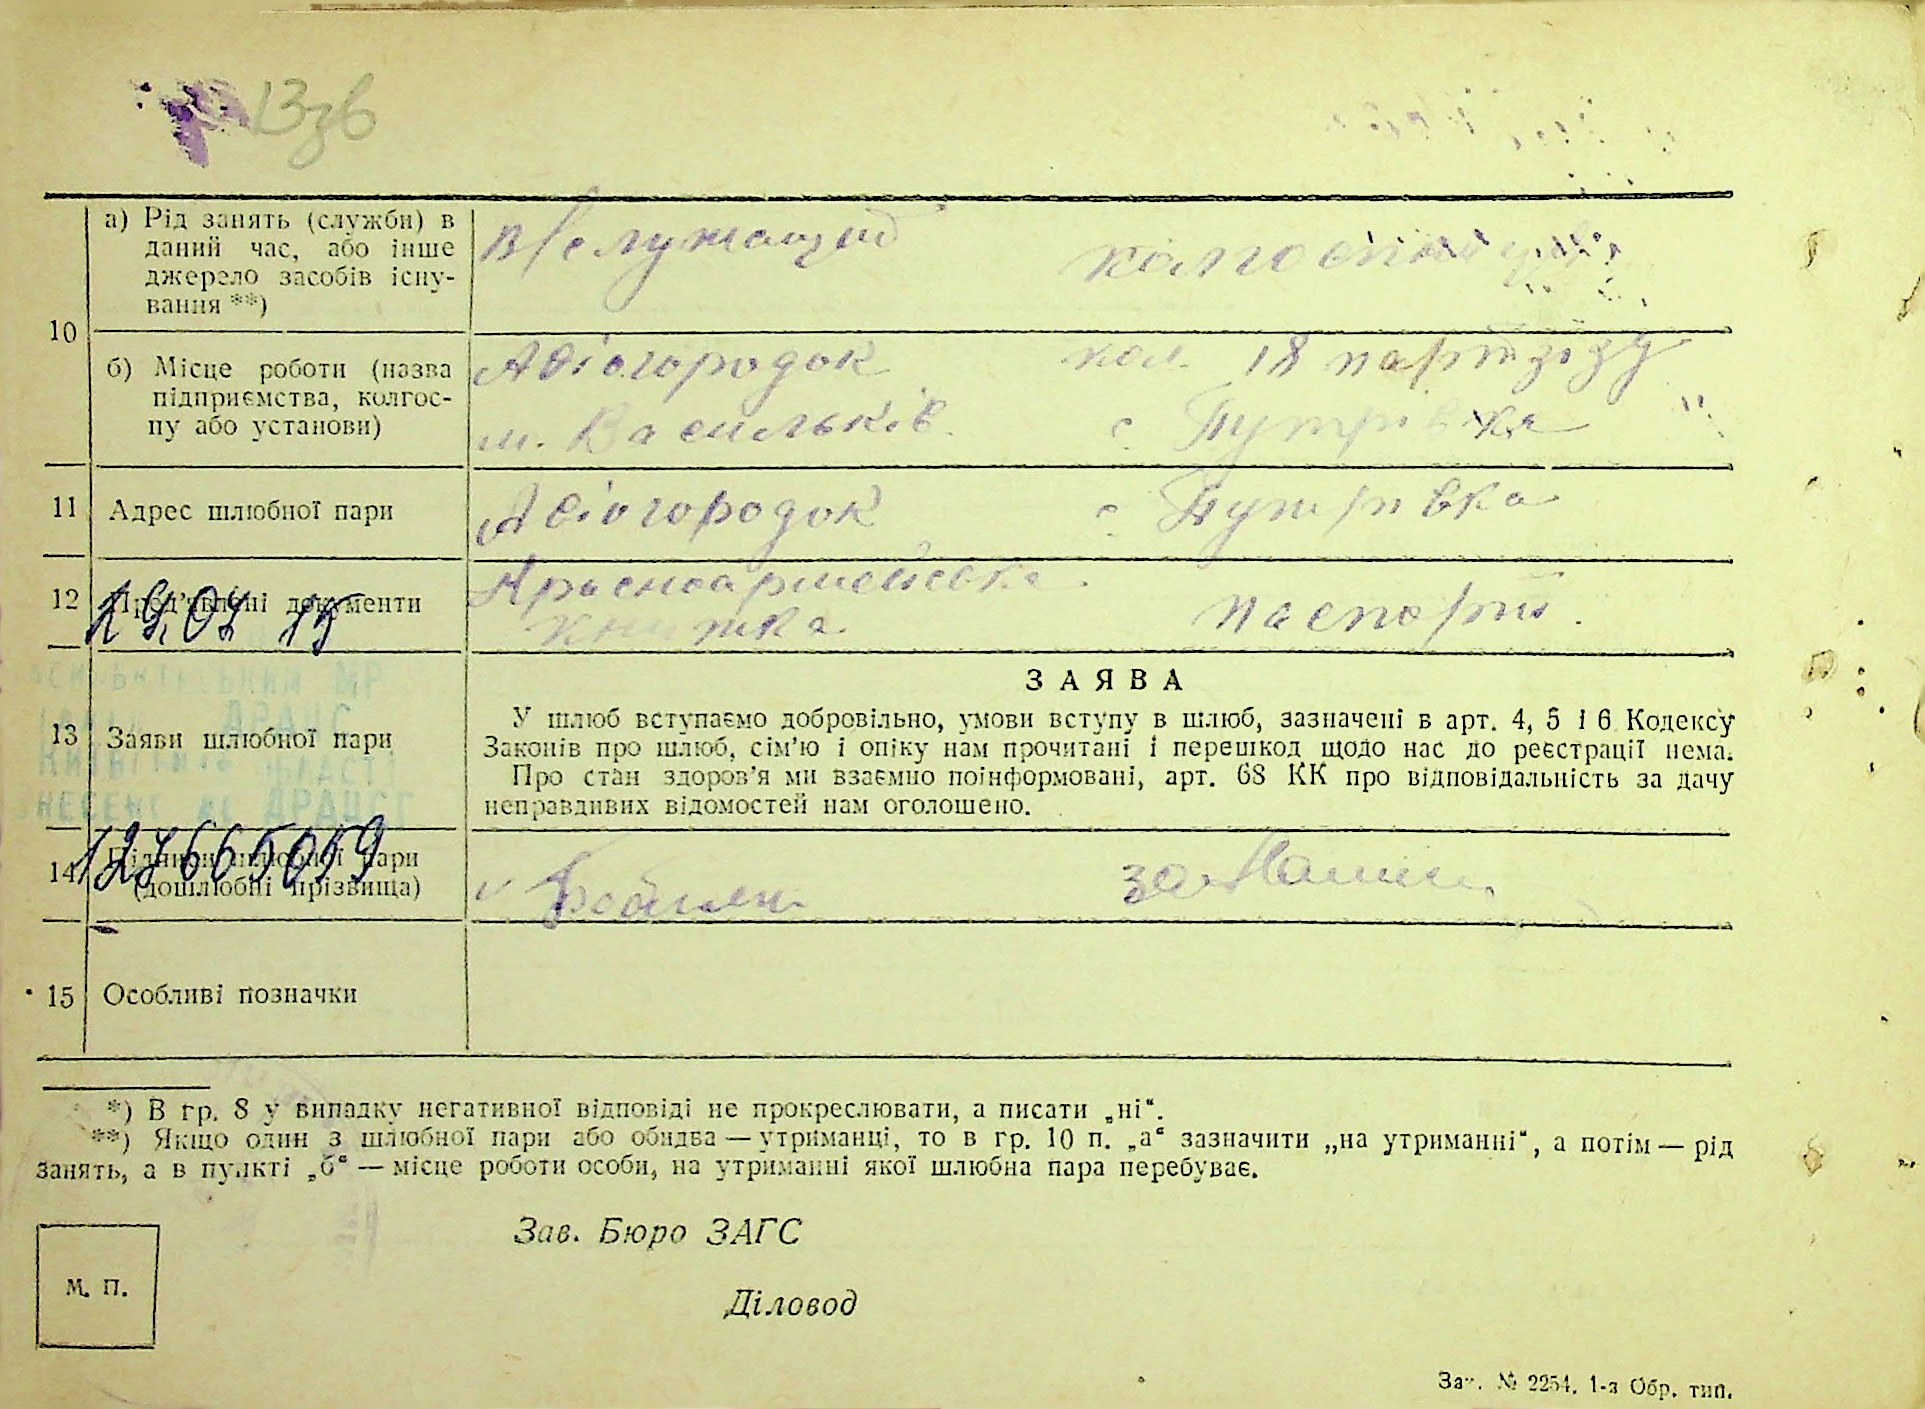 13зв
а) Рід занять (служби) в
даний час, або інше
джерело засобів існу-
вання **)
в/служащий
колгоспниця
10
б) Місце роботи (назва
підприємства, колгос-
пу або установи)
Авіогородок
м. Васильків.
кол. 18 партзїзду
с Путрівка
11 Адрес шлюбної пари
Авіогородок
с Путрівка
12 Пред'явлені документи
29.07 15
Красноармейська
книжка
паспорт.
МР
ДРАЦС
ДРАЦСГ
13 Заяви шлюбної пари
ЗАЯВА
У шлюб вступаємо добровільно, умови вступу в шлюб, зазначені в арт. 4, 5 і 6 Кодексу
Законів про шлюб, сім'ю і опіку нам прочитані і перешкод щодо нас до реєстрації нема.
Про стан здоров'я ми взаємно поінформовані, арт. 68 КК про відповідальність за дачу
неправдивих відомостей нам оголошено.
14 Підписи шлюбної пари
(дошлюбні прізвища)
127665059
за
15 Особливі позначки
*) В гр. 8 у випадку негативної відповіді не прокреслювати, а писати „ні“.
**) Якщо один з шлюбної пари або обидва — утриманці, то в гр. 10 п. „а“ зазначити „на утриманні“, а потім — рід
занять, а в пункті „б“ — місце роботи особи, на утриманні якої шлюбна пара перебуває.
Зав. Бюро ЗАГС
М. П.
Діловод
Зат. № 2254. 1-а Обр. тип.